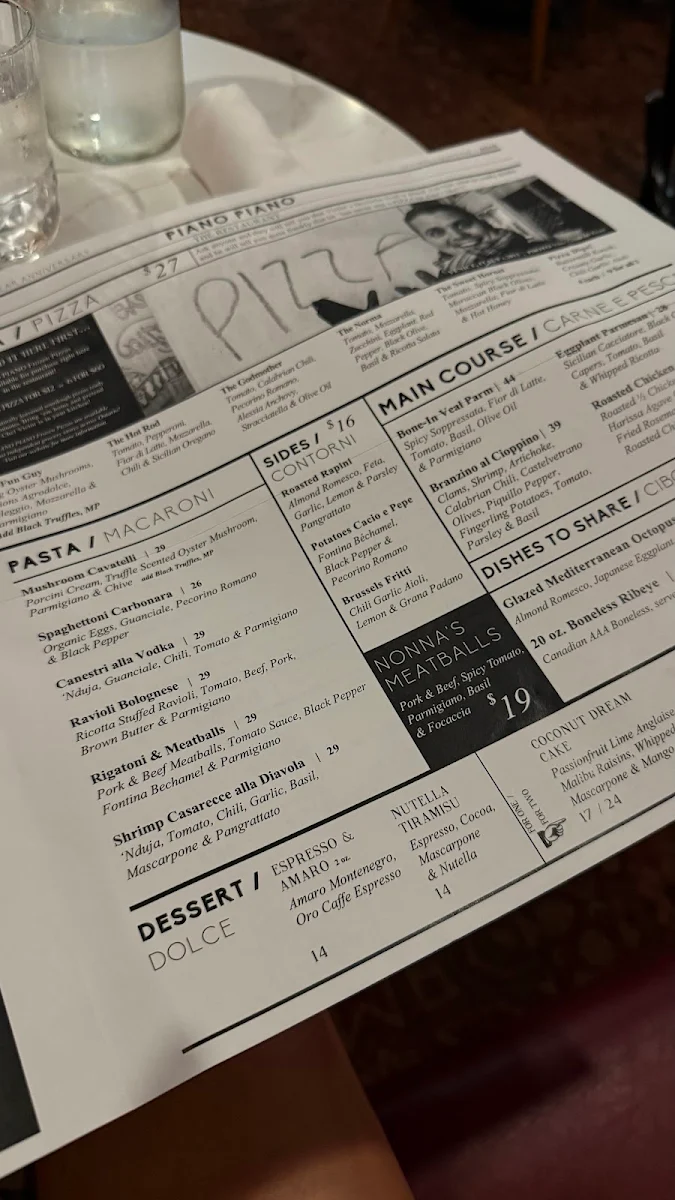 PIANO PIANO
THE RESTAURANT
ANNIVERSARY
/ PIZZA
$27
PIZZA
The Hot Rod
Tomato, Pepperoni,
Fior di Latte, Mozzarella,
Chili & Sicilian Oregano
The Godmother
Tomato, Calabrian Chili,
Pecorino Romano,
Alessia Anchovy,
Stracciatella & Olive Oil
The Norma
Tomato, Mozzarella,
Zucchini, Eggplant, Red
Pepper, Black Olive,
Basil & Ricotta Salata
The Sweet Hornet
Tomato, Spicy Soppressata,
Moroccan Black Olives,
Mozzarella, Fior di Latte
& Hot Honey
Fun Guy
Oyster Mushrooms,
Agrodolce,
Mozzarella &
Add Black Truffles, MP
PASTA / MACARONI
Mushroom Cavatelli | 29
Porcini Cream, Truffle Scented Oyster Mushroom,
Parmigiano & Chive add Black Truffles, MP
Spaghettoni Carbonara | 26
Organic Eggs, Guanciale, Pecorino Romano
& Black Pepper
Canestri alla Vodka | 29
'Nduja, Guanciale, Chili, Tomato & Parmigiano
Ravioli Bolognese | 29
Ricotta Stuffed Ravioli, Tomato, Beef, Pork,
Brown Butter & Parmigiano
Rigatoni & Meatballs | 29
Pork & Beef Meatballs, Tomato Sauce, Black Pepper
Fontina Bechamel & Parmigiano
Shrimp Casarecce alla Diavola | 29
'Nduja, Tomato, Chili, Garlic, Basil,
Mascarpone & Pangrattato
SIDES / $16
CONTORNI
Roasted Rapini
Almond Romesco, Feta,
Garlic, Lemon & Parsley
Pangrattato
Potatoes Cacio e Pepe
Fontina Béchamel,
Black Pepper &
Pecorino Romano
Brussels Fritti
Chili Garlic Aioli,
Lemon & Grana Padano
NONNA'S
MEATBALLS
Pork & Beef, Spicy Tomato,
Parmigiano, Basil
& Focaccia $19
MAIN COURSE / CARNE E PESC
Bone-In Veal Parm | 44
Spicy Soppressata, Fior di Latte,
Tomato, Basil, Olive Oil
& Parmigiano
Branzino al Cioppino | 39
Clams, Shrimp, Artichoke,
Calabrian Chili, Castelvetrano
Olives, Piquillo Pepper,
Fingerling Potatoes, Tomato,
Parsley & Basil
Eggplant Parmesan | 28
Sicilian Caciatore, Black
Capers, Tomato, Basil
& Whipped Ricotta
Roasted Chicken
Roasted ½ Chicken
Harissa Agave
Fried Rosemary
Roasted
DISHES TO SHARE / CIB
Glazed Mediterranean Octopus
Almond Romesco, Japanese Eggplant
20 oz. Boneless Ribeye |
Canadian AAA Boneless, serve
DESSERT /
DOLCE
ESPRESSO &
AMARO 2 oz.
Amaro Montenegro,
Oro Caffe Espresso
14
NUTELLA
TIRAMISU
Espresso, Cocoa,
Mascarpone
& Nutella
14
FOR ONE /
FOR TWO
COCONUT DREAM
CAKE
Passionfruit Lime Anglaise
Malibu Raisins, Whipped
Mascarpone & Mango
17 / 24